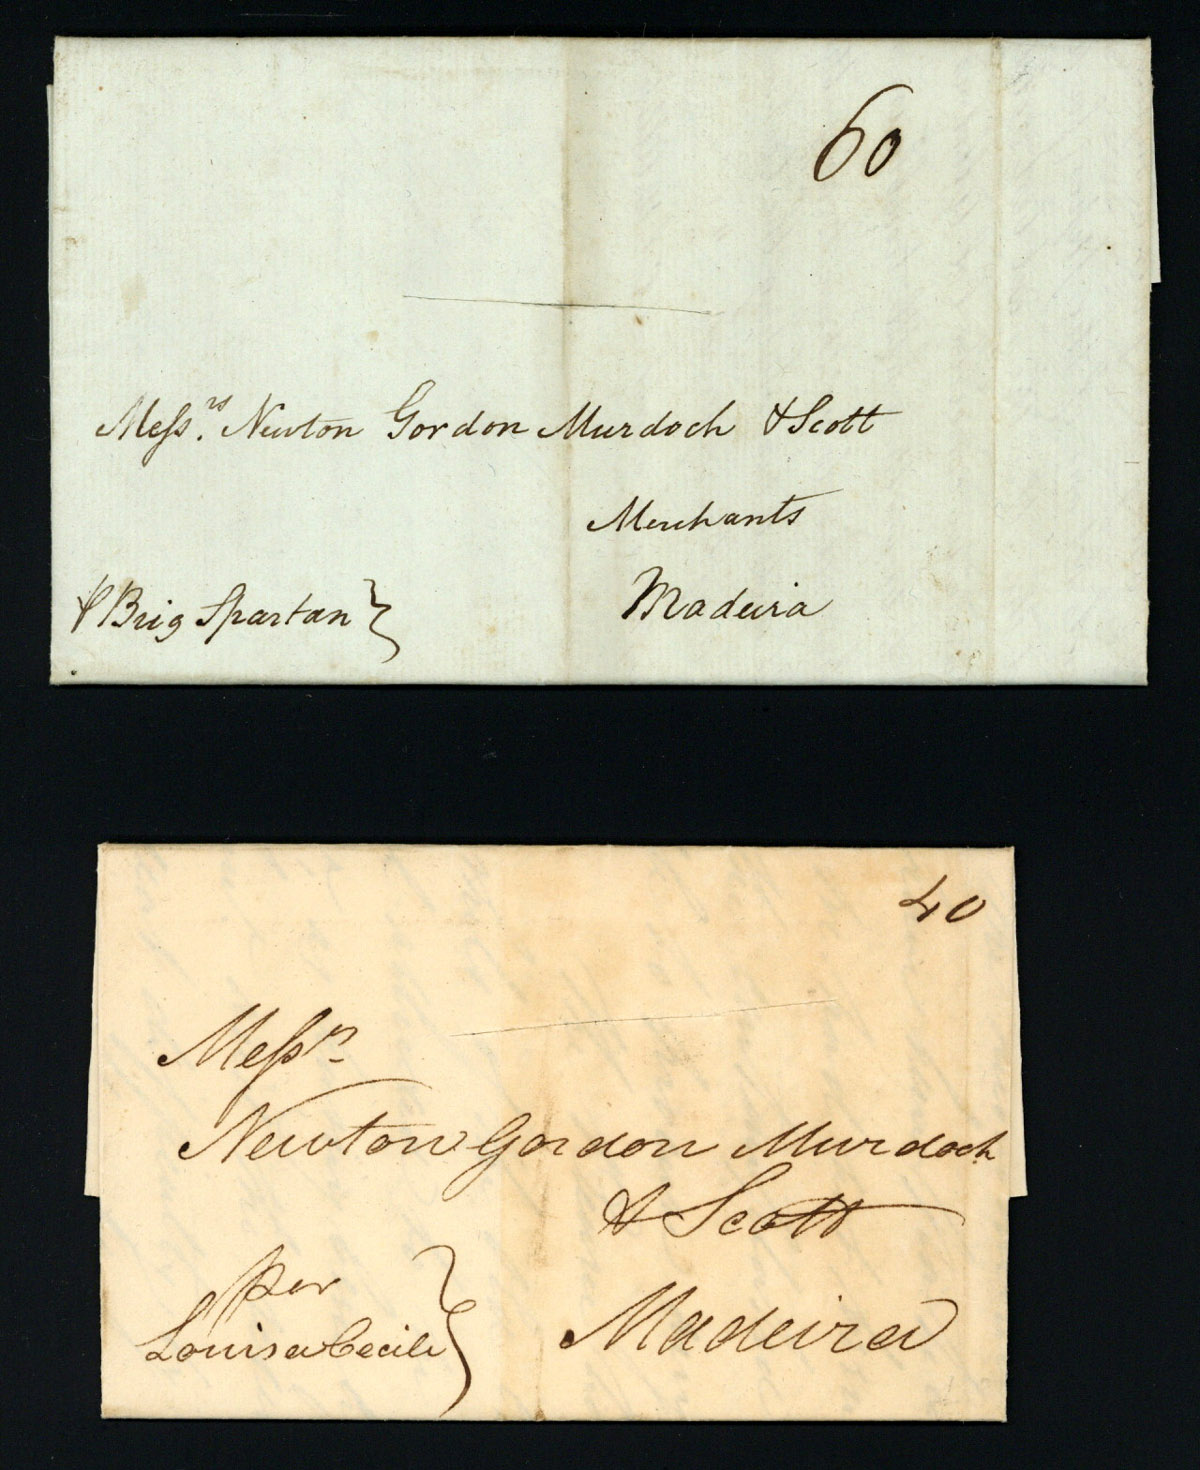 60
Messrs. Newton Gordon Murdoch & Scott
Merchants
Madeira
⅌ Brig Spartan}
40
Messrs
Newton Gordon Murdoch
& Scott
Madeira
per
Louisa Cecile}